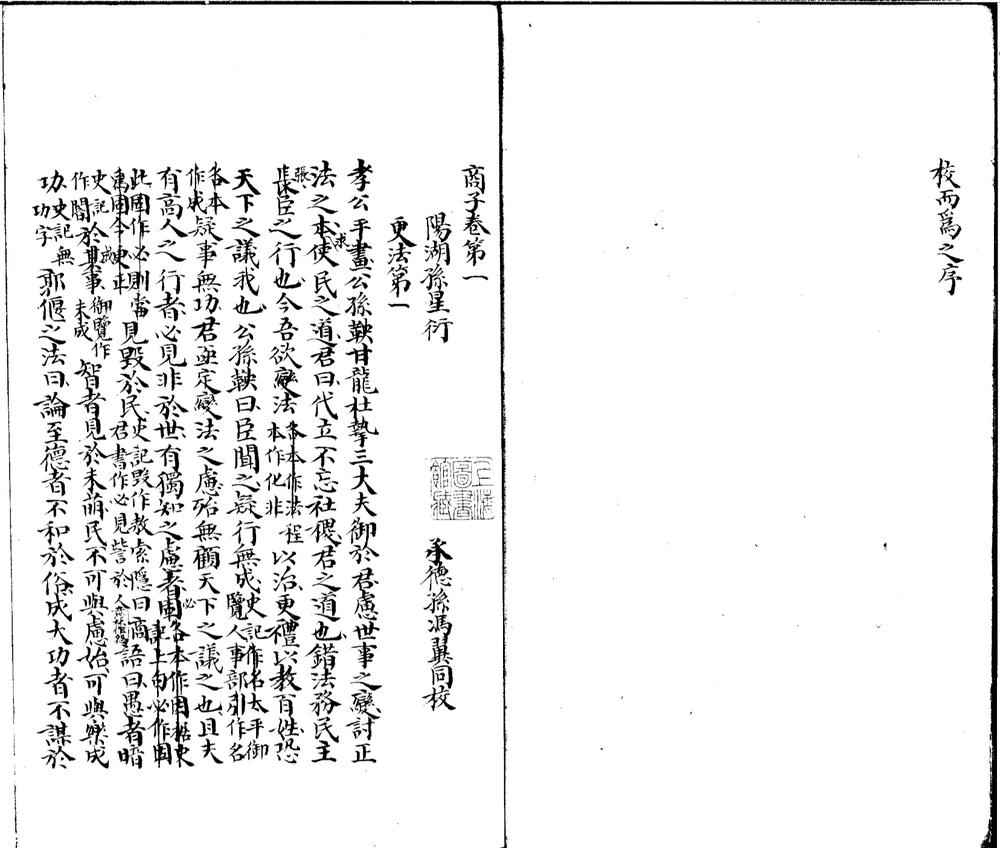 校而爲之序
商子卷第一
陽湖孫星衍
承德孫馮翼同校
更法第一
孝公平畫公孫鞅甘龍杜摯三大夫御於君慮世事之變討正
法之本求使民之道君曰代立不忘社稷君之道也錯法務民主
張臣之行也今吾欲變法各本作法程本作化非以治更禮以教百姓恐
天下之議我也公孫鞅曰臣聞之疑行無成史記作名太平御覽人事部引作名
各本作成疑事無功君亟定變法之慮殆無顧天下之議之也且夫
有高人之行者必見非於世有獨知之慮者必
此固作必則當見毀於民史記毀作教索隱曰商君書作必見訾於人語曰愚者暗
史記作闇於成事御覽作未成智者見於未萌民不可與慮始可與樂成
功史記無功字郭偃之法曰論至德者不和於俗成大功者不謀於
上海圖書館藏